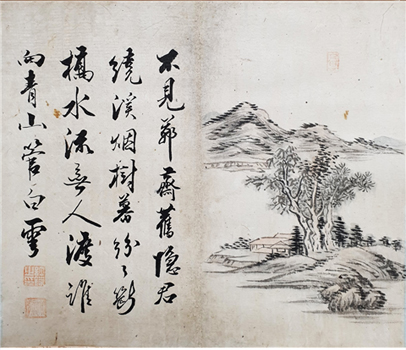 不見茆齋舊隱君
繞溪烟樹暮紛〻斷
橋水流無人渡誰
向青山管白雲